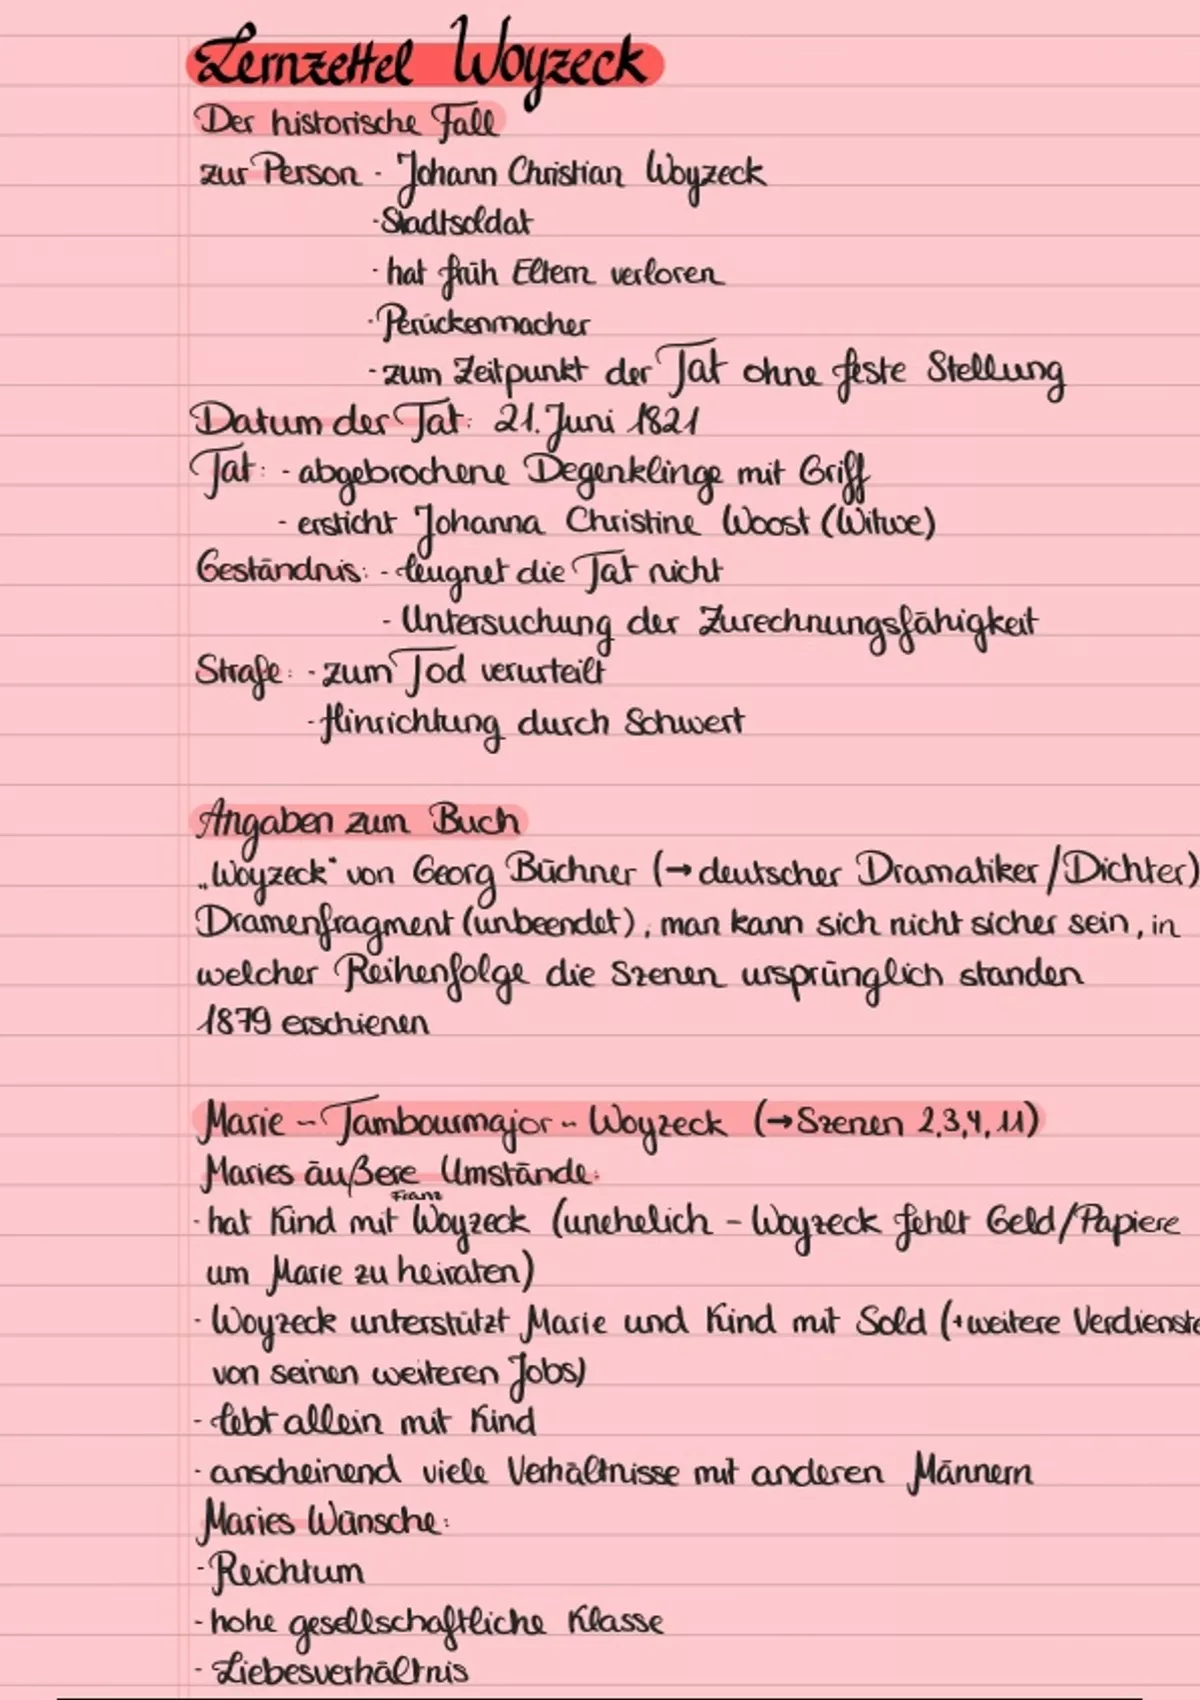 Lernzettel Woyzeck
Der historische Fall
zur Person - Johann Christian Woyzeck
- Stadtsoldat
- hat früh Eltern verloren
- Perückenmacher
- zum Zeitpunkt der Tat ohne feste Stellung
Datum der Tat: 21. Juni 1821
Tat: - abgebrochene Degenklinge mit Griff
- ersticht Johanna Christine Woost (Witwe)
Geständnis: - leugnet die Tat nicht
- Untersuchung der Zurechnungsfähigkeit
Strafe: - zum Tod verurteilt
- Hinrichtung durch Schwert
Angaben zum Buch
„Woyzeck“ von Georg Büchner (→ deutscher Dramatiker/Dichter)
Dramenfragment (unbeendet), man kann sich nicht sicher sein, in
welcher Reihenfolge die Szenen ursprünglich standen
1879 erschienen
Marie - Tambourmajor - Woyzeck (→ Szenen 2,3,4,11)
Maries äußere Umstände:
Franz
- hat Kind mit Woyzeck (unehelich - Woyzeck fehlt Geld/Papiere
um Marie zu heiraten)
- Woyzeck unterstützt Marie und Kind mit Sold (+weitere Verdienste
von seinen weiteren Jobs)
- lebt allein mit Kind
- anscheinend viele Verhältnisse mit anderen Männern
Maries Wünsche:
- Reichtum
- hohe gesellschaftliche Klasse
- Liebesverhältnis